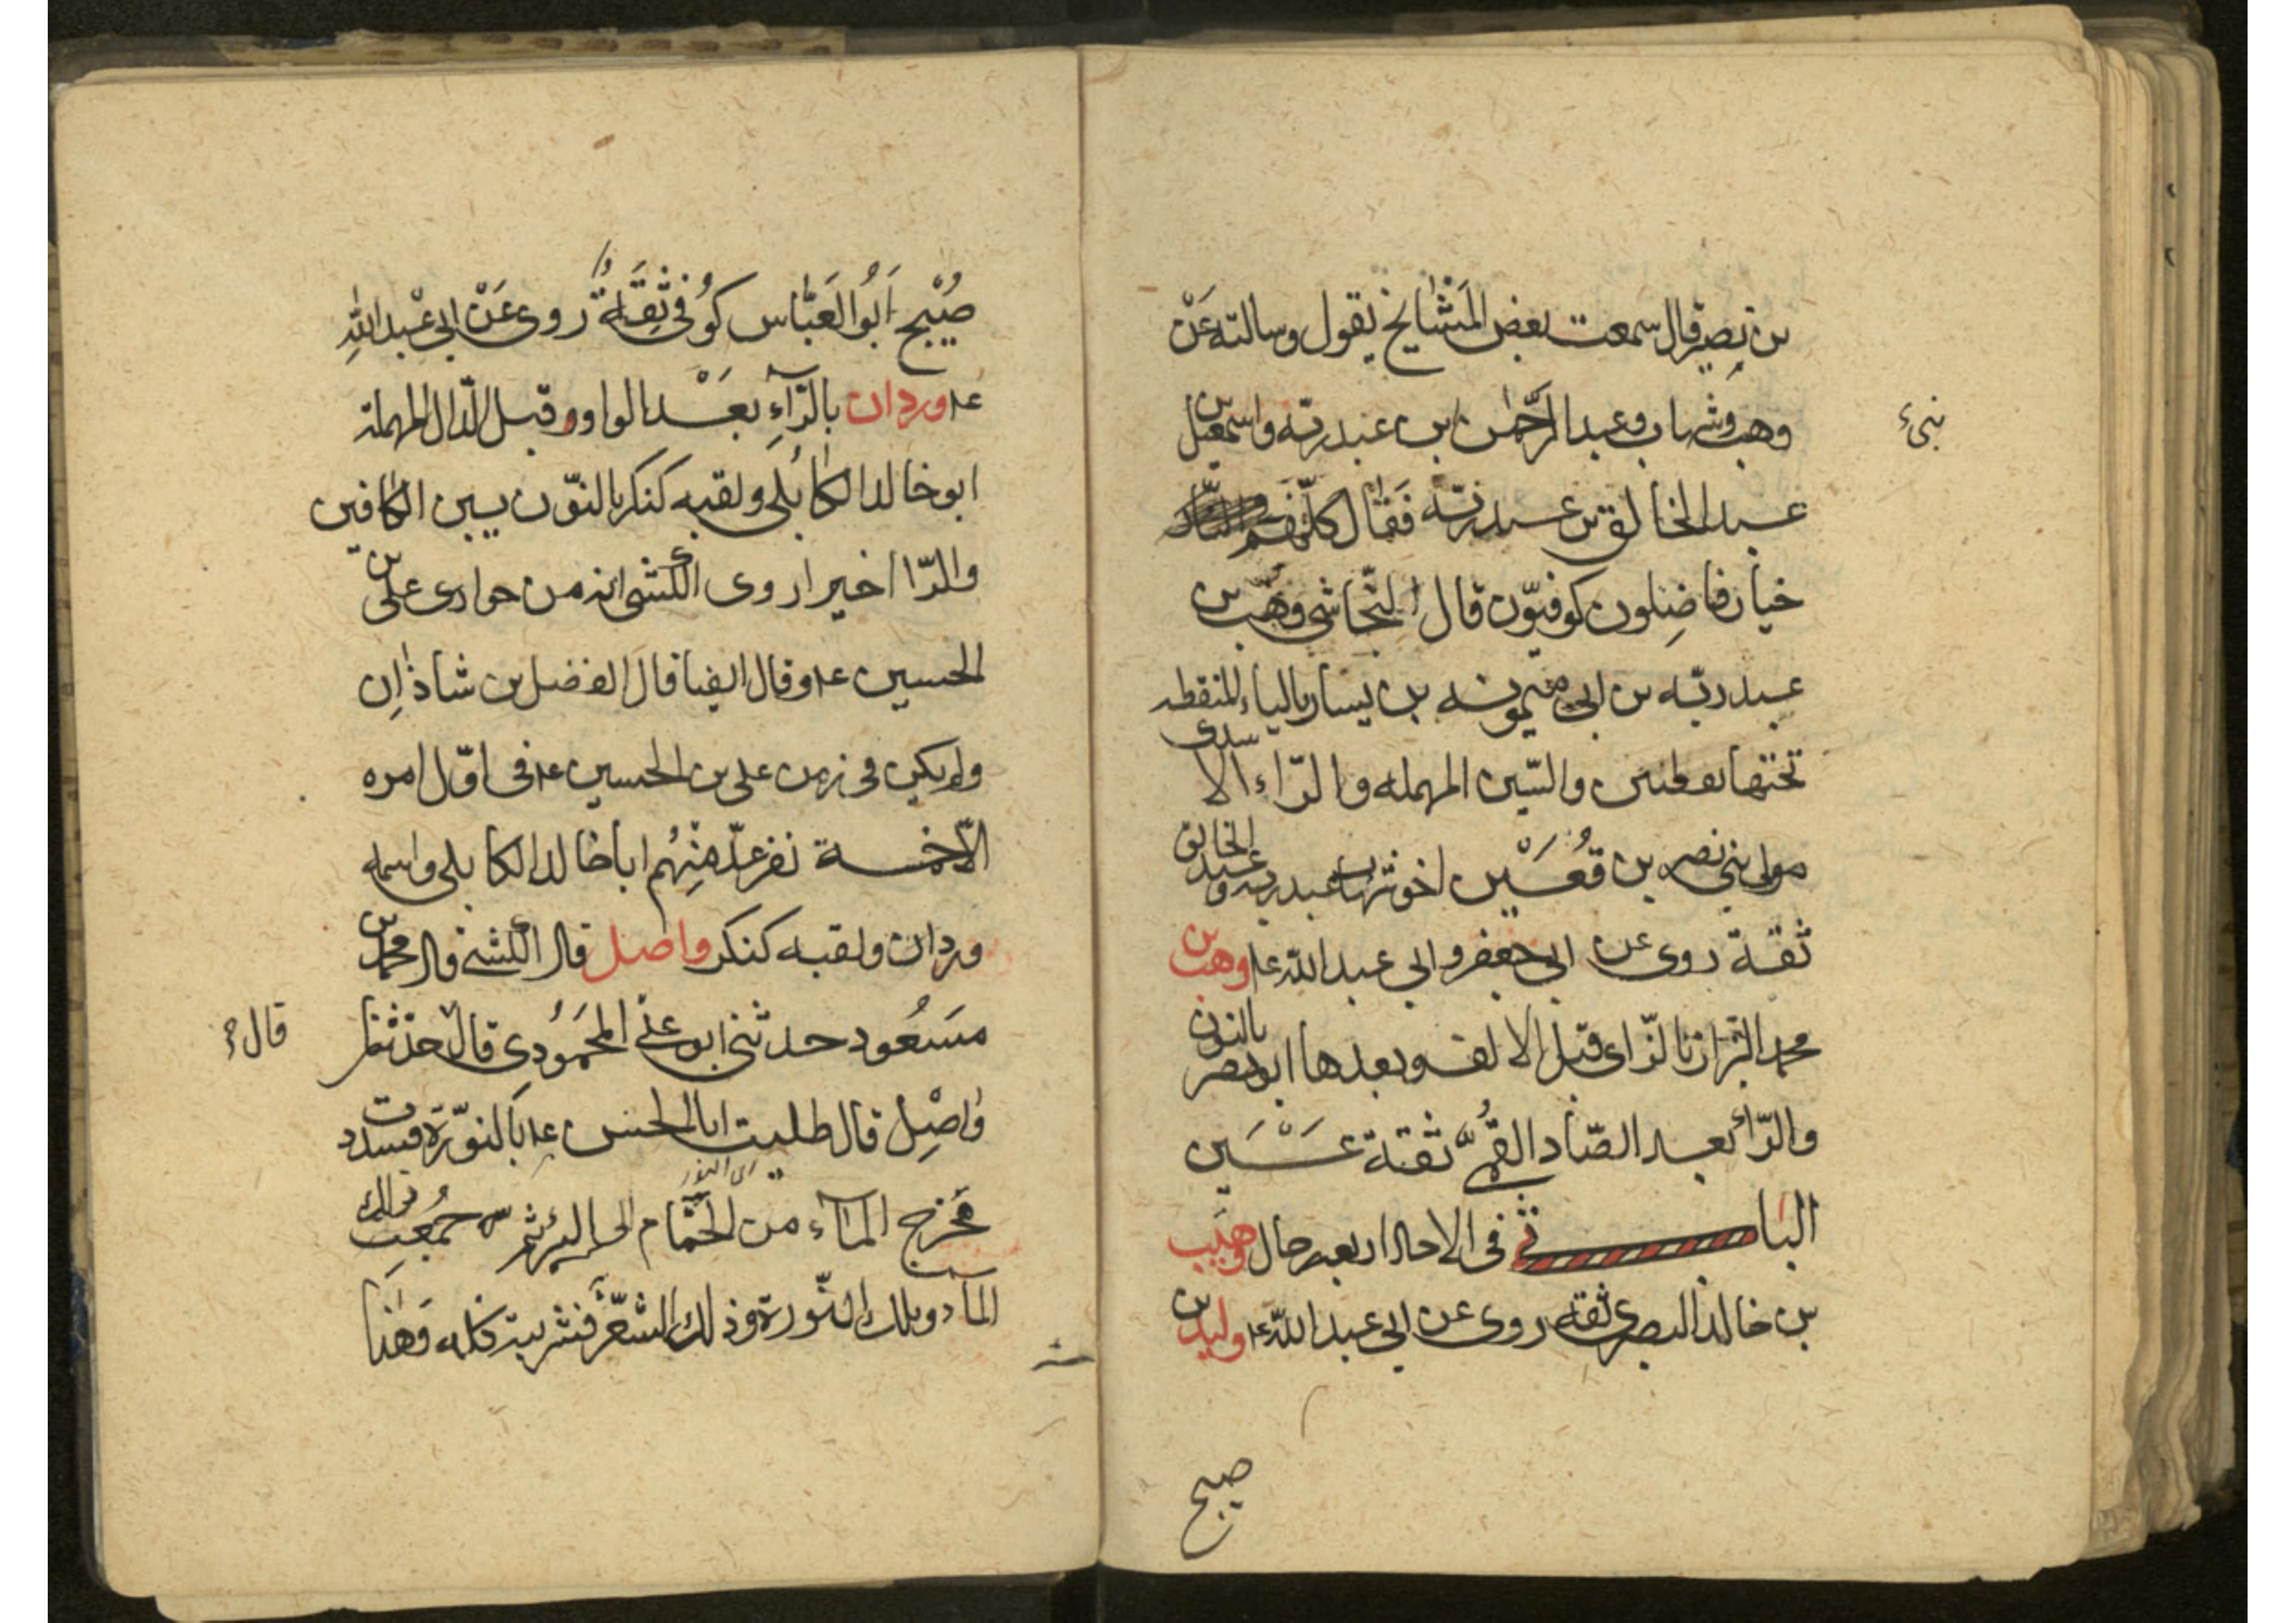 بن نصير قال سمعت بعض المشايخ يقول وسالته عن
وهب وشهاب وعبد الرحمن ابن عبد ربه واسمعيل بن
عبد الخالق بن عبد ربه فقال كلهم
خيار فاضلون كوفيون قال النجاشي وهب بن
عبد ربه بن ابي ميمونه بن يسار بالياء المنقطه
تحتها نقطتين والسين المهمله والراء الاسدى
مولى بني نصر بن قعين اخو شهاب بن عبد ربه وعبد الخالق
ثقة روى عن ابي جعفر وابي عبد الله ع وهب بن
محمد البزاز بالزاى قبل الالف وبعدها ابو نصر بالنون
والرا بعد الصاد القمي ثقة عين
البا في الاحاد اربعه رجال وهيب
بن خالد البصري ثقه روى عن ابي عبد الله ع وليد بن
صبيح
صُبيح ابو العباس كوفي ثقة روى عن ابي عبد الله
ع وردان بالراء بعد الواو وقبل الدال المهملة
ابو خالد الكابلي ولقبه كنكر بالنون بين الكافين
والرا اخيرا روى الكشي انه من حوارى علي بن
الحسين ع وقال ايضا قال الفضل بن شاذان
ولم يكن في زمن علي بن الحسين ع في اول امره
الا خمسة نفر عد منهم ابا خالد الكابلي واسمه
وردان ولقبه كنكر واصل قال الكشي قال محمد بن
مسعود حدثني ابو علي المحمودي قال حدثنا
قال
واصل قال طليت ابا الحسن ع بالنورة فسددت
مخرج الماء من الحمام الى البئر ثم جمعت ذلك
الماء وتلك النورة وذلك الشعر فشربته كله وهذا